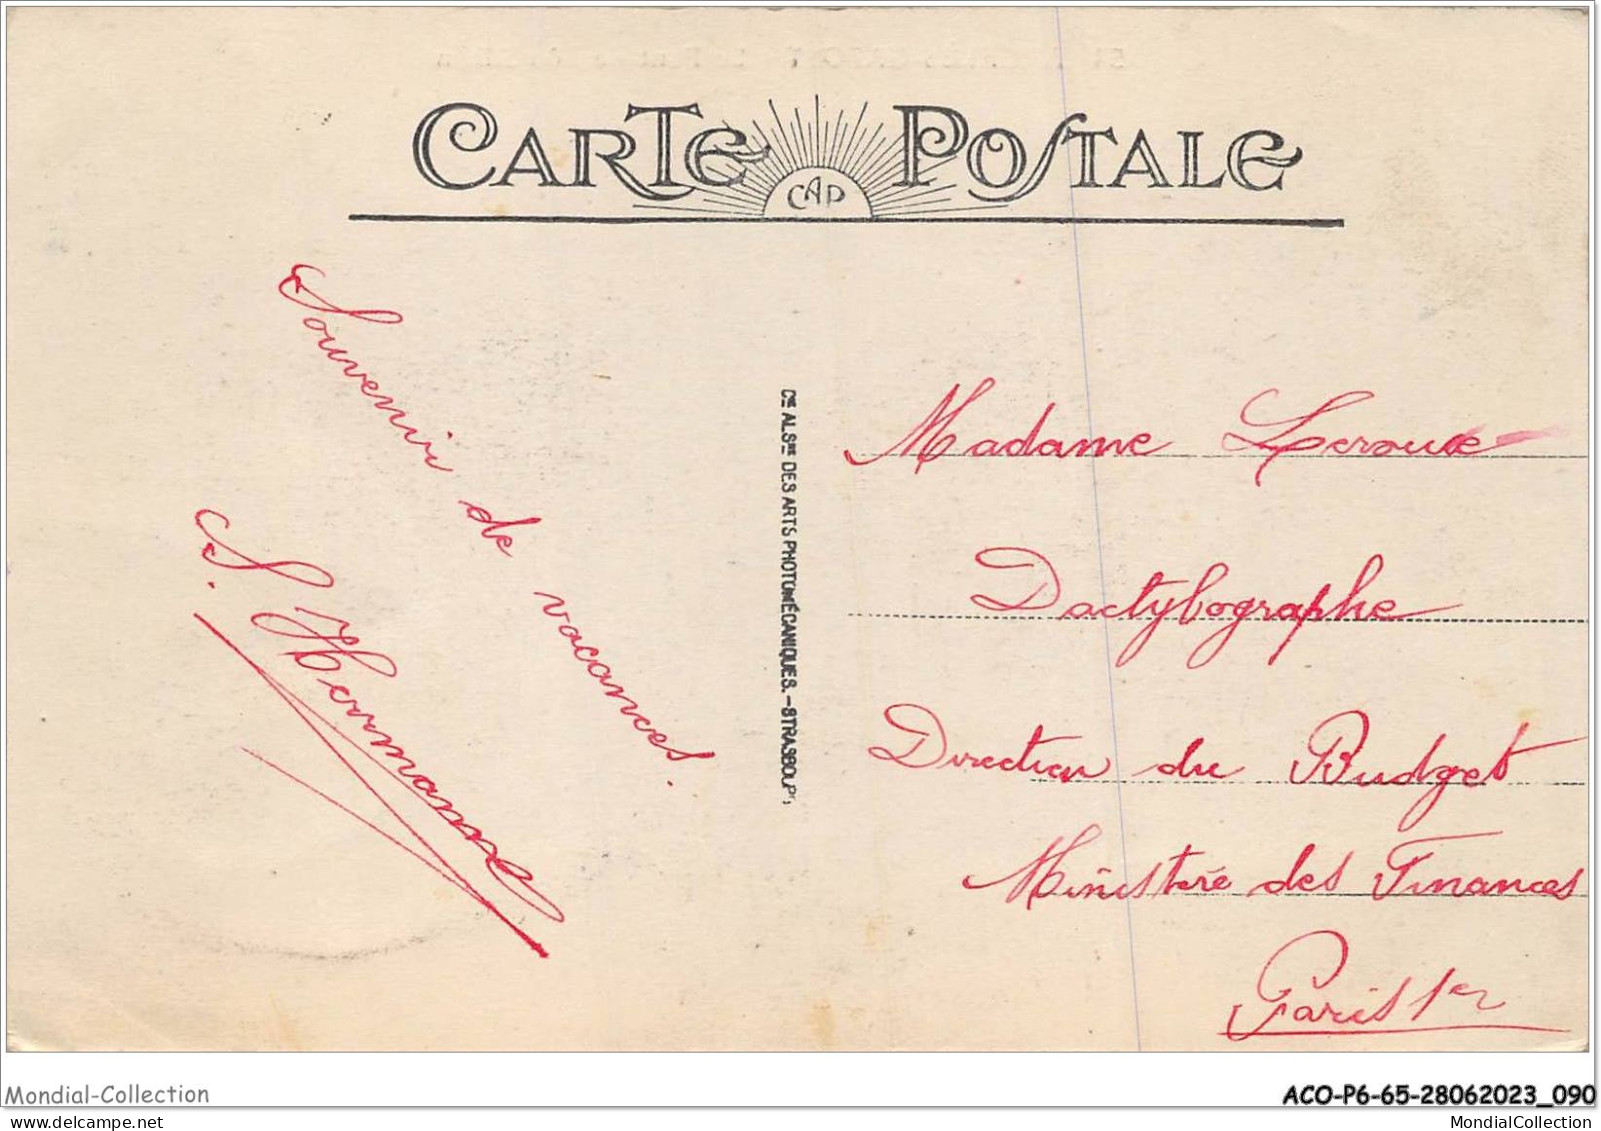 CARTE POSTALE
CAP
Souvenir de vacances.
S. Hermanne
Cie ALSne DES ARTS PHOTOMÉCANIQUES.-STRASBOURG
Madame Leroux
Dactylographe
Direction du Budget
Ministère des Finances
Paris 1er
Mondial-Collection
ACO-P6-65-28062023_090
MondialCollection